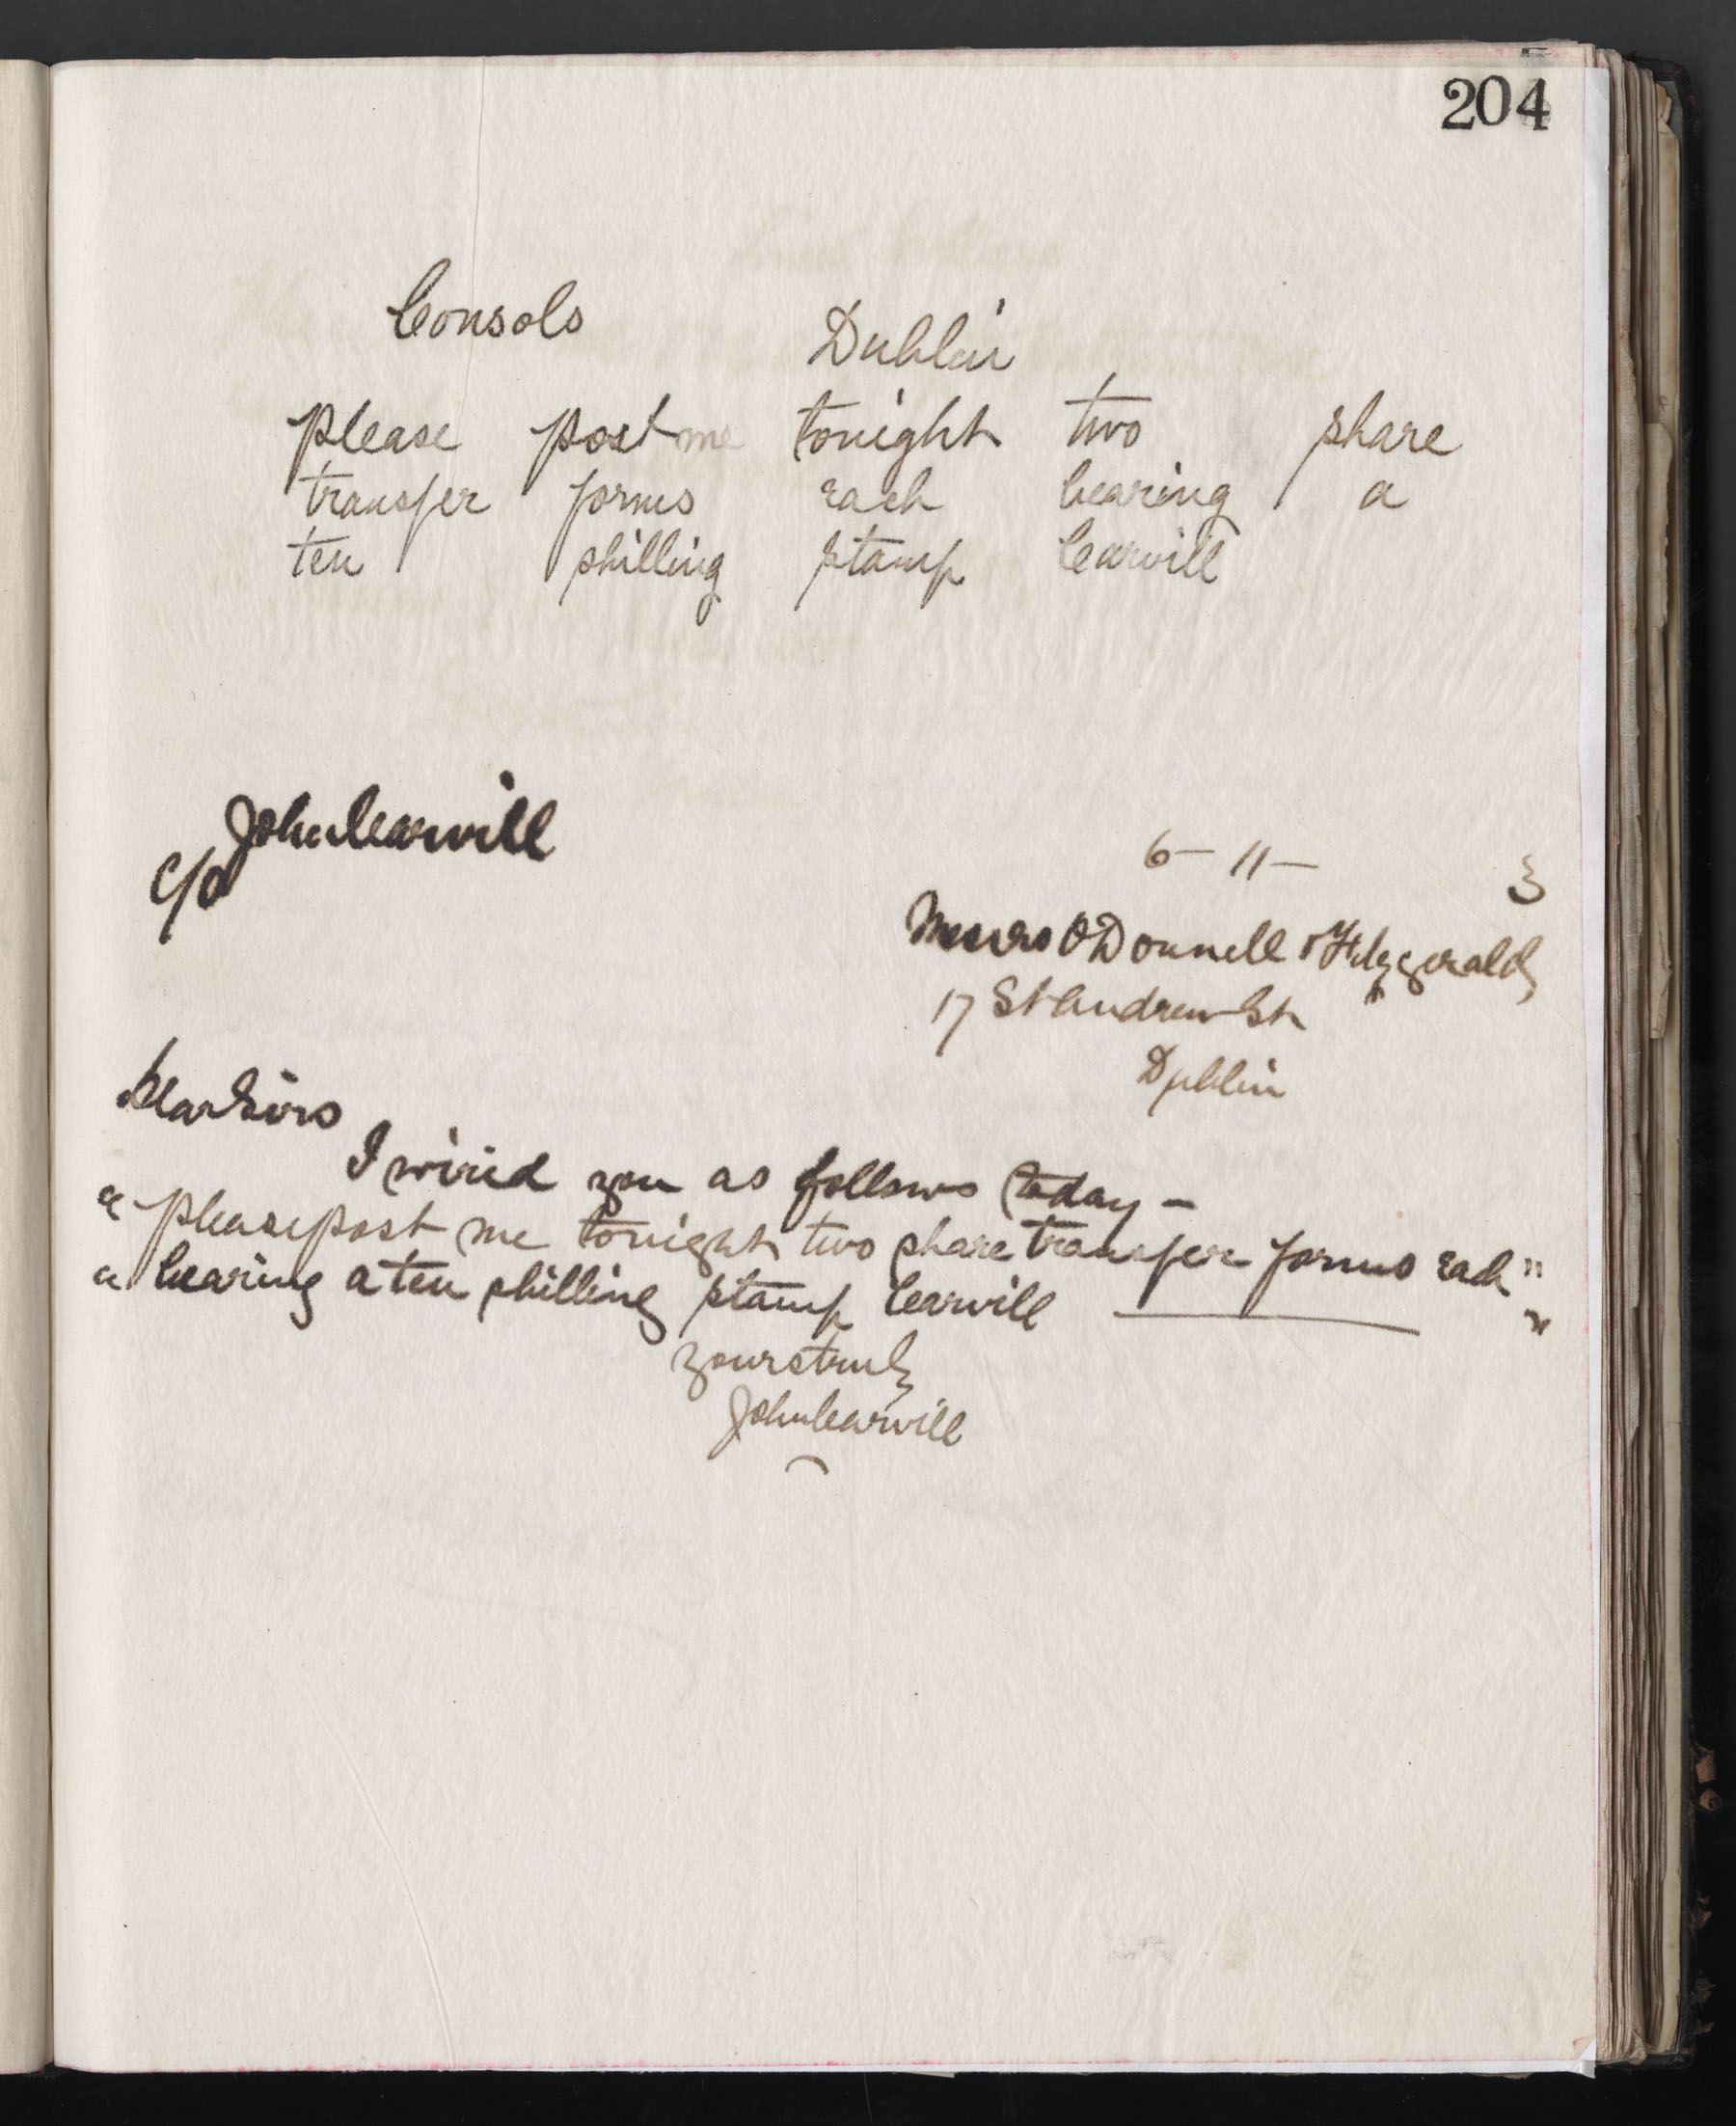 204
Consols
Dublin
please post me tonight two share
transfer forms each bearing a
ten shilling stamp Carvill
John Carvill
C/o
6 - 11 - 3
Messrs O'Donnell & Fitzgerald
17 St Andrew St
Dublin
Dear Sirs
I wired you as follows today -
" please post me tonight two share transfer forms each "
" bearing a ten shilling stamp Carvill "
Yours truly
John Carvill